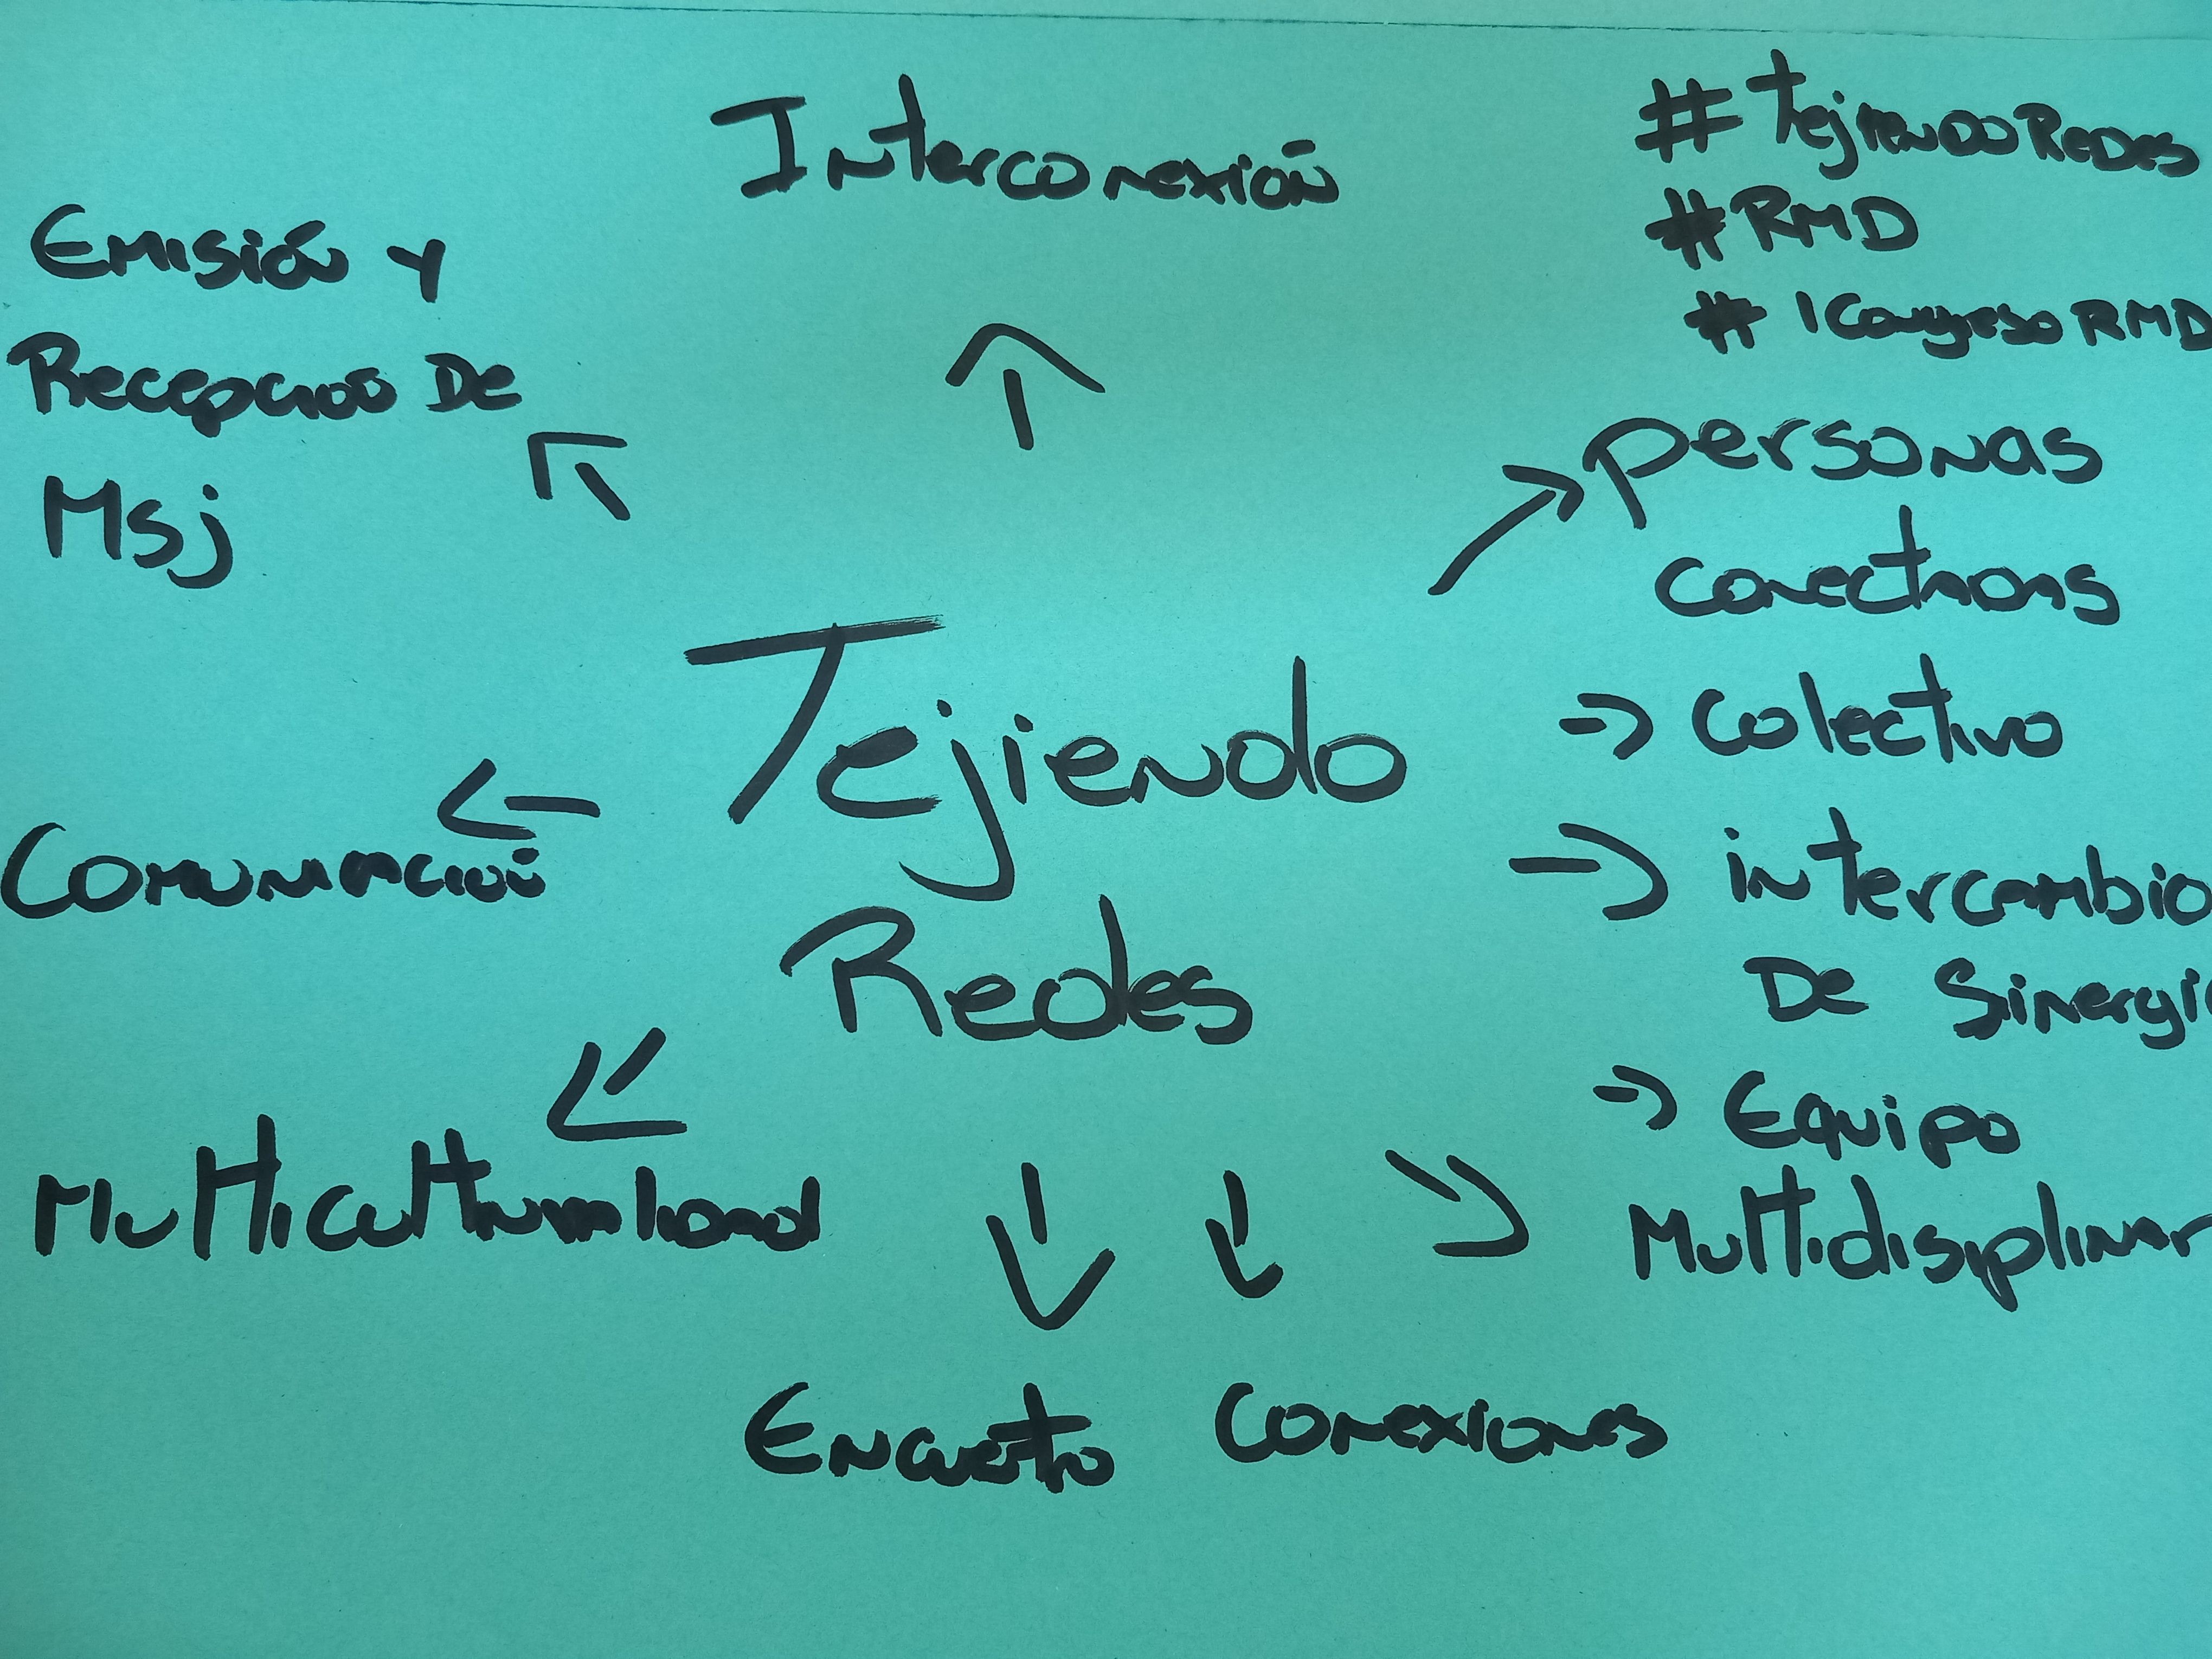 Interconexión
#TejiendoRedes
#RMD
#1CongresoRMD
Emisión y
Recepcion De
Msj
personas
conectadas
Tejiendo
Redes
→ Colectivo
→ intercambio
De Sinergi
→ Equipo
Multidisiplinar
← Comunicación
Multiculturalidad
Encuetro
Conexiones